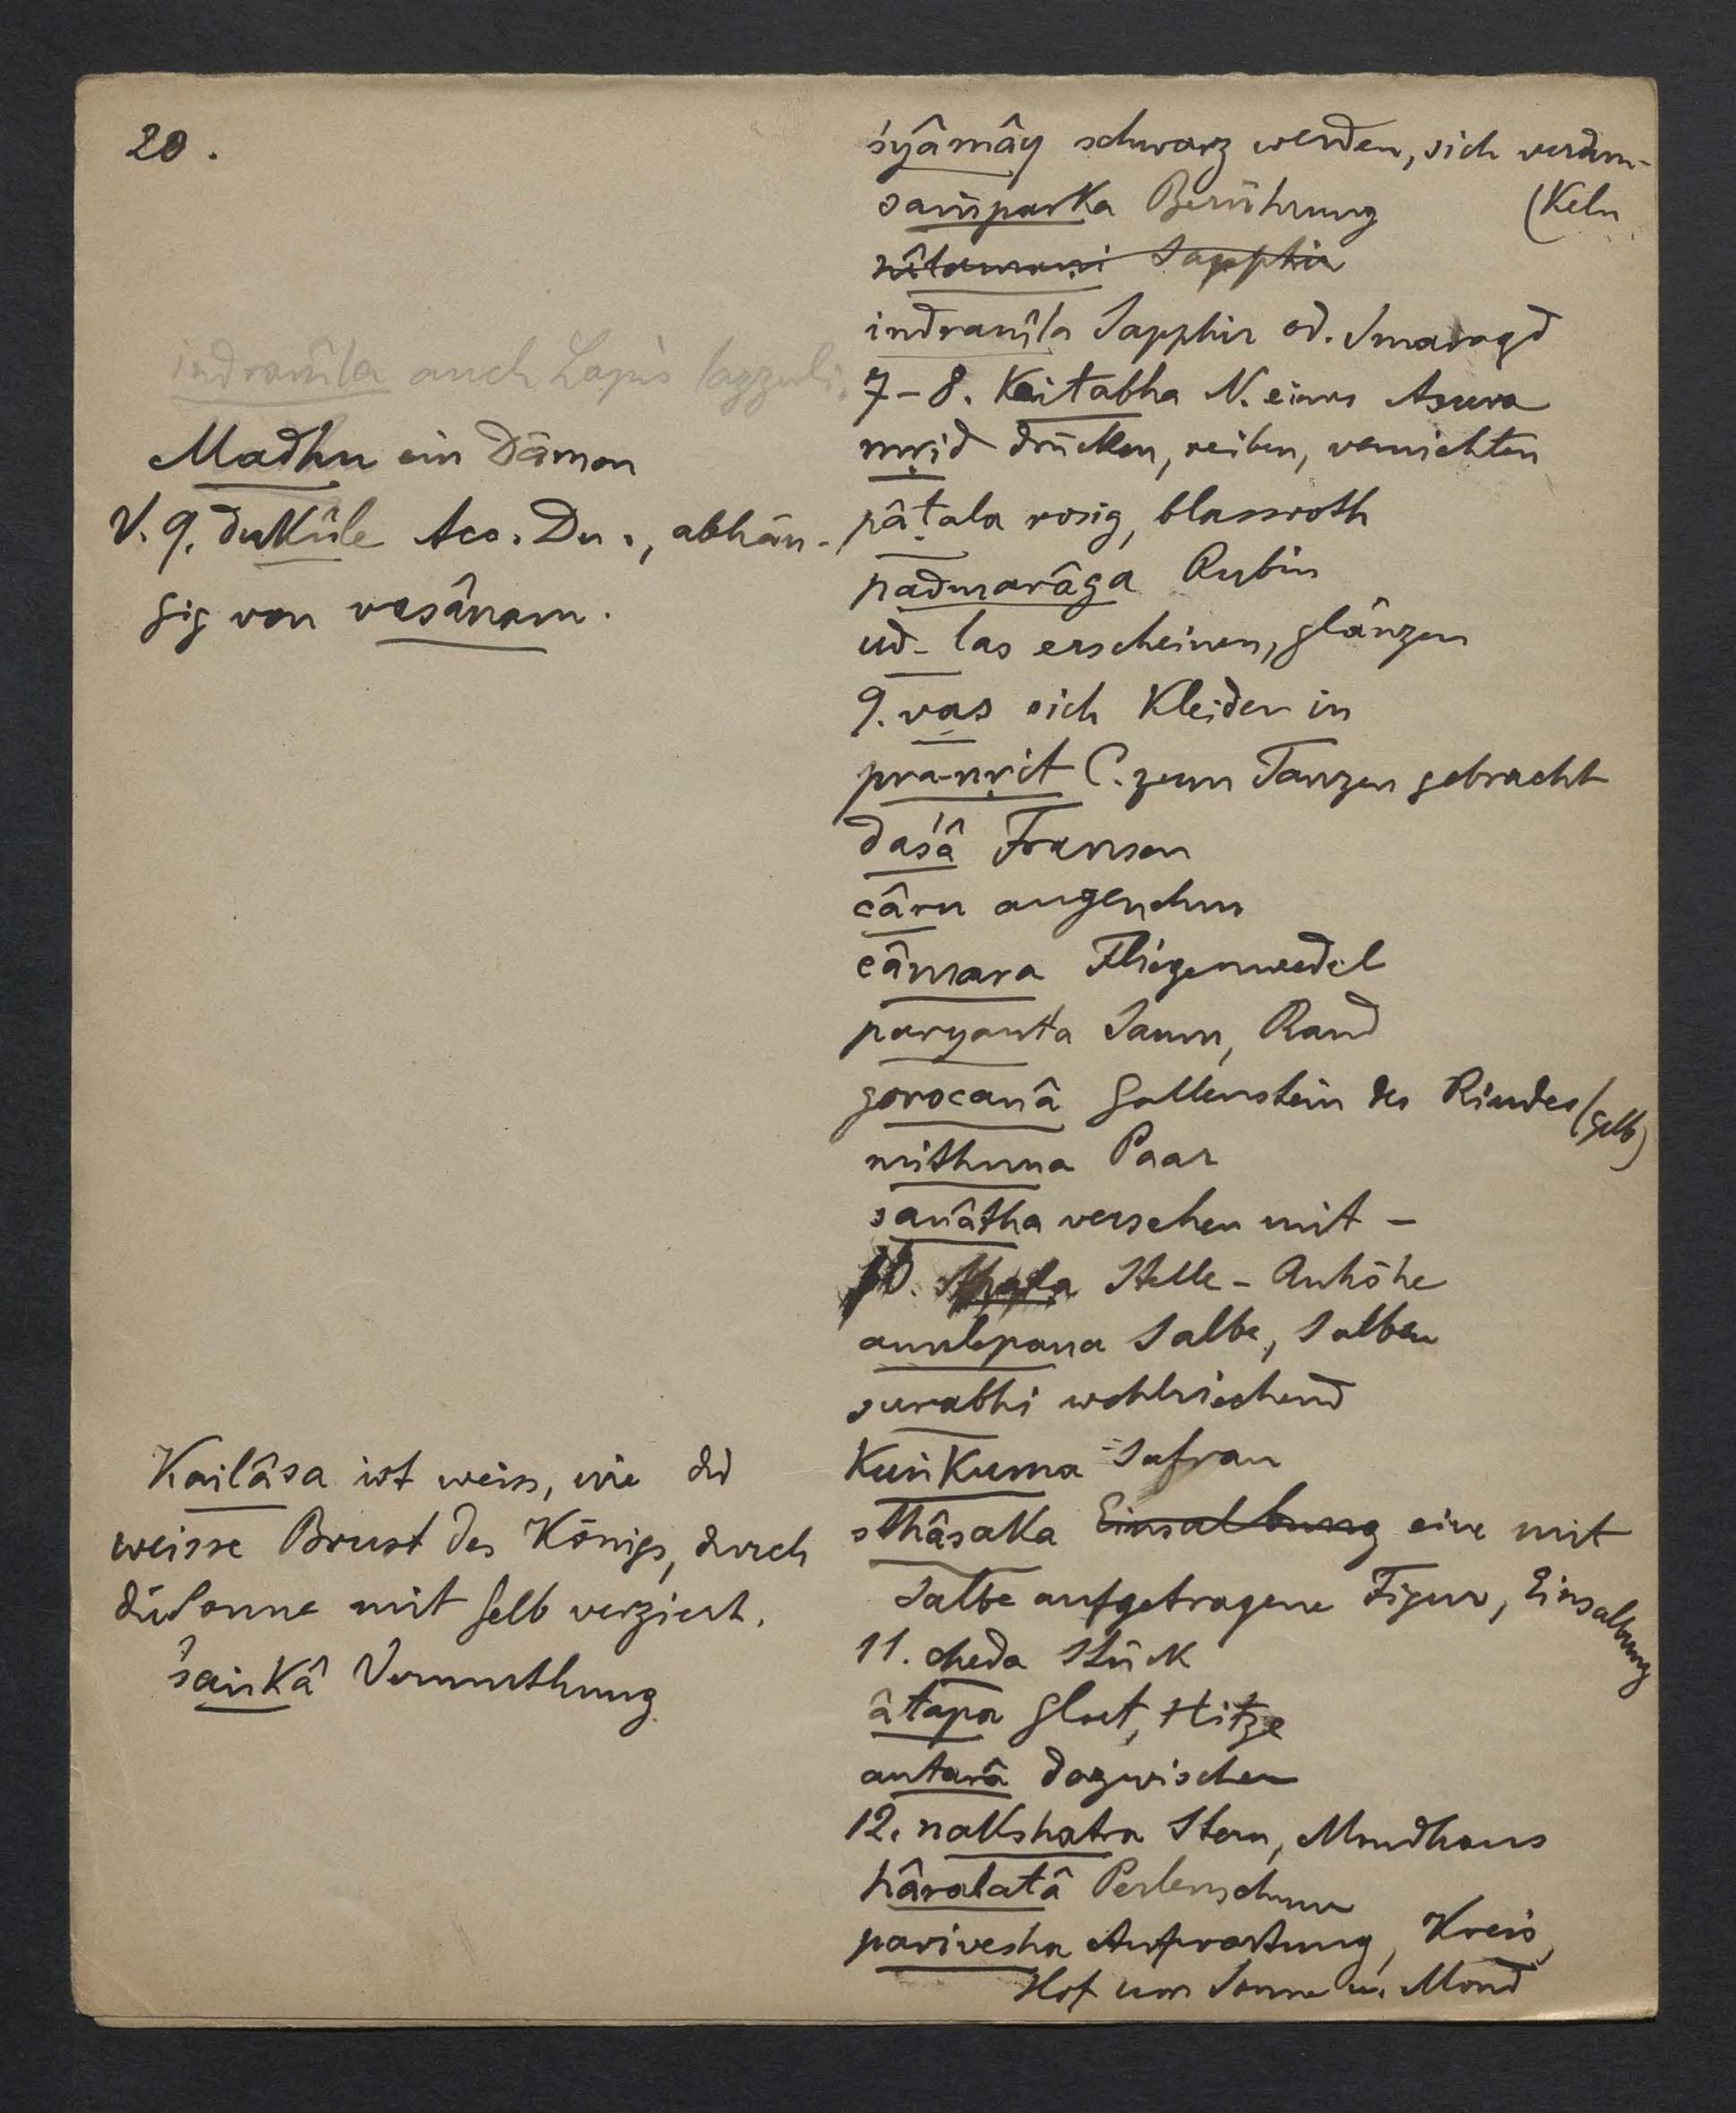 20.
indranîla auch Lapis lazzuli.
Madhu ein Dämon
V. 9. dukûle Acc. Du., abhän-
gig von vasânam.
Kailâsa ist weiss, wie die
weisse Brust des Königs, durch
die Sonne mit gelb verziert.
śaṅkâ Vermuthung
śyâmây schwarz werden, sich verdun-
(keln
saṁparka Berührung
nîlamaṇi Sapphir
indranîla Sapphir od. Smaragd
7-8. Kaiṭabha N. eines Asura
mṛid drücken, reiben, vernichten
pâṭala rosig, blassroth
padmarâga Rubin
ud-las erscheinen, glänzen
9. vas sich kleiden in
pra-nṛit C. zum Tanzen gebracht
daśâ Fransen
câru angenehm
câmara Fliegenwedel
paryanta Saum, Rand
gorocanâ Gallenstein des Rindes (gelb)
mithuna Paar
sanâtha versehen mit -
10. sthala Stelle - Anhöhe
anulepana Salbe, Salben
surabhi wohlriechend
kuṅkuma Safran
sthâsaka Einsalbung eine mit
Salbe aufgetragene Figur, Einsalbung
11. cheda Stück
âtapa Glut, Hitze
antarâ dazwischen
12. nakshatra Stern, Mondhaus
hâralatâ Perlenschnur
parivesha Aufwartung, Kreis,
Hof um Sonne u. Mond